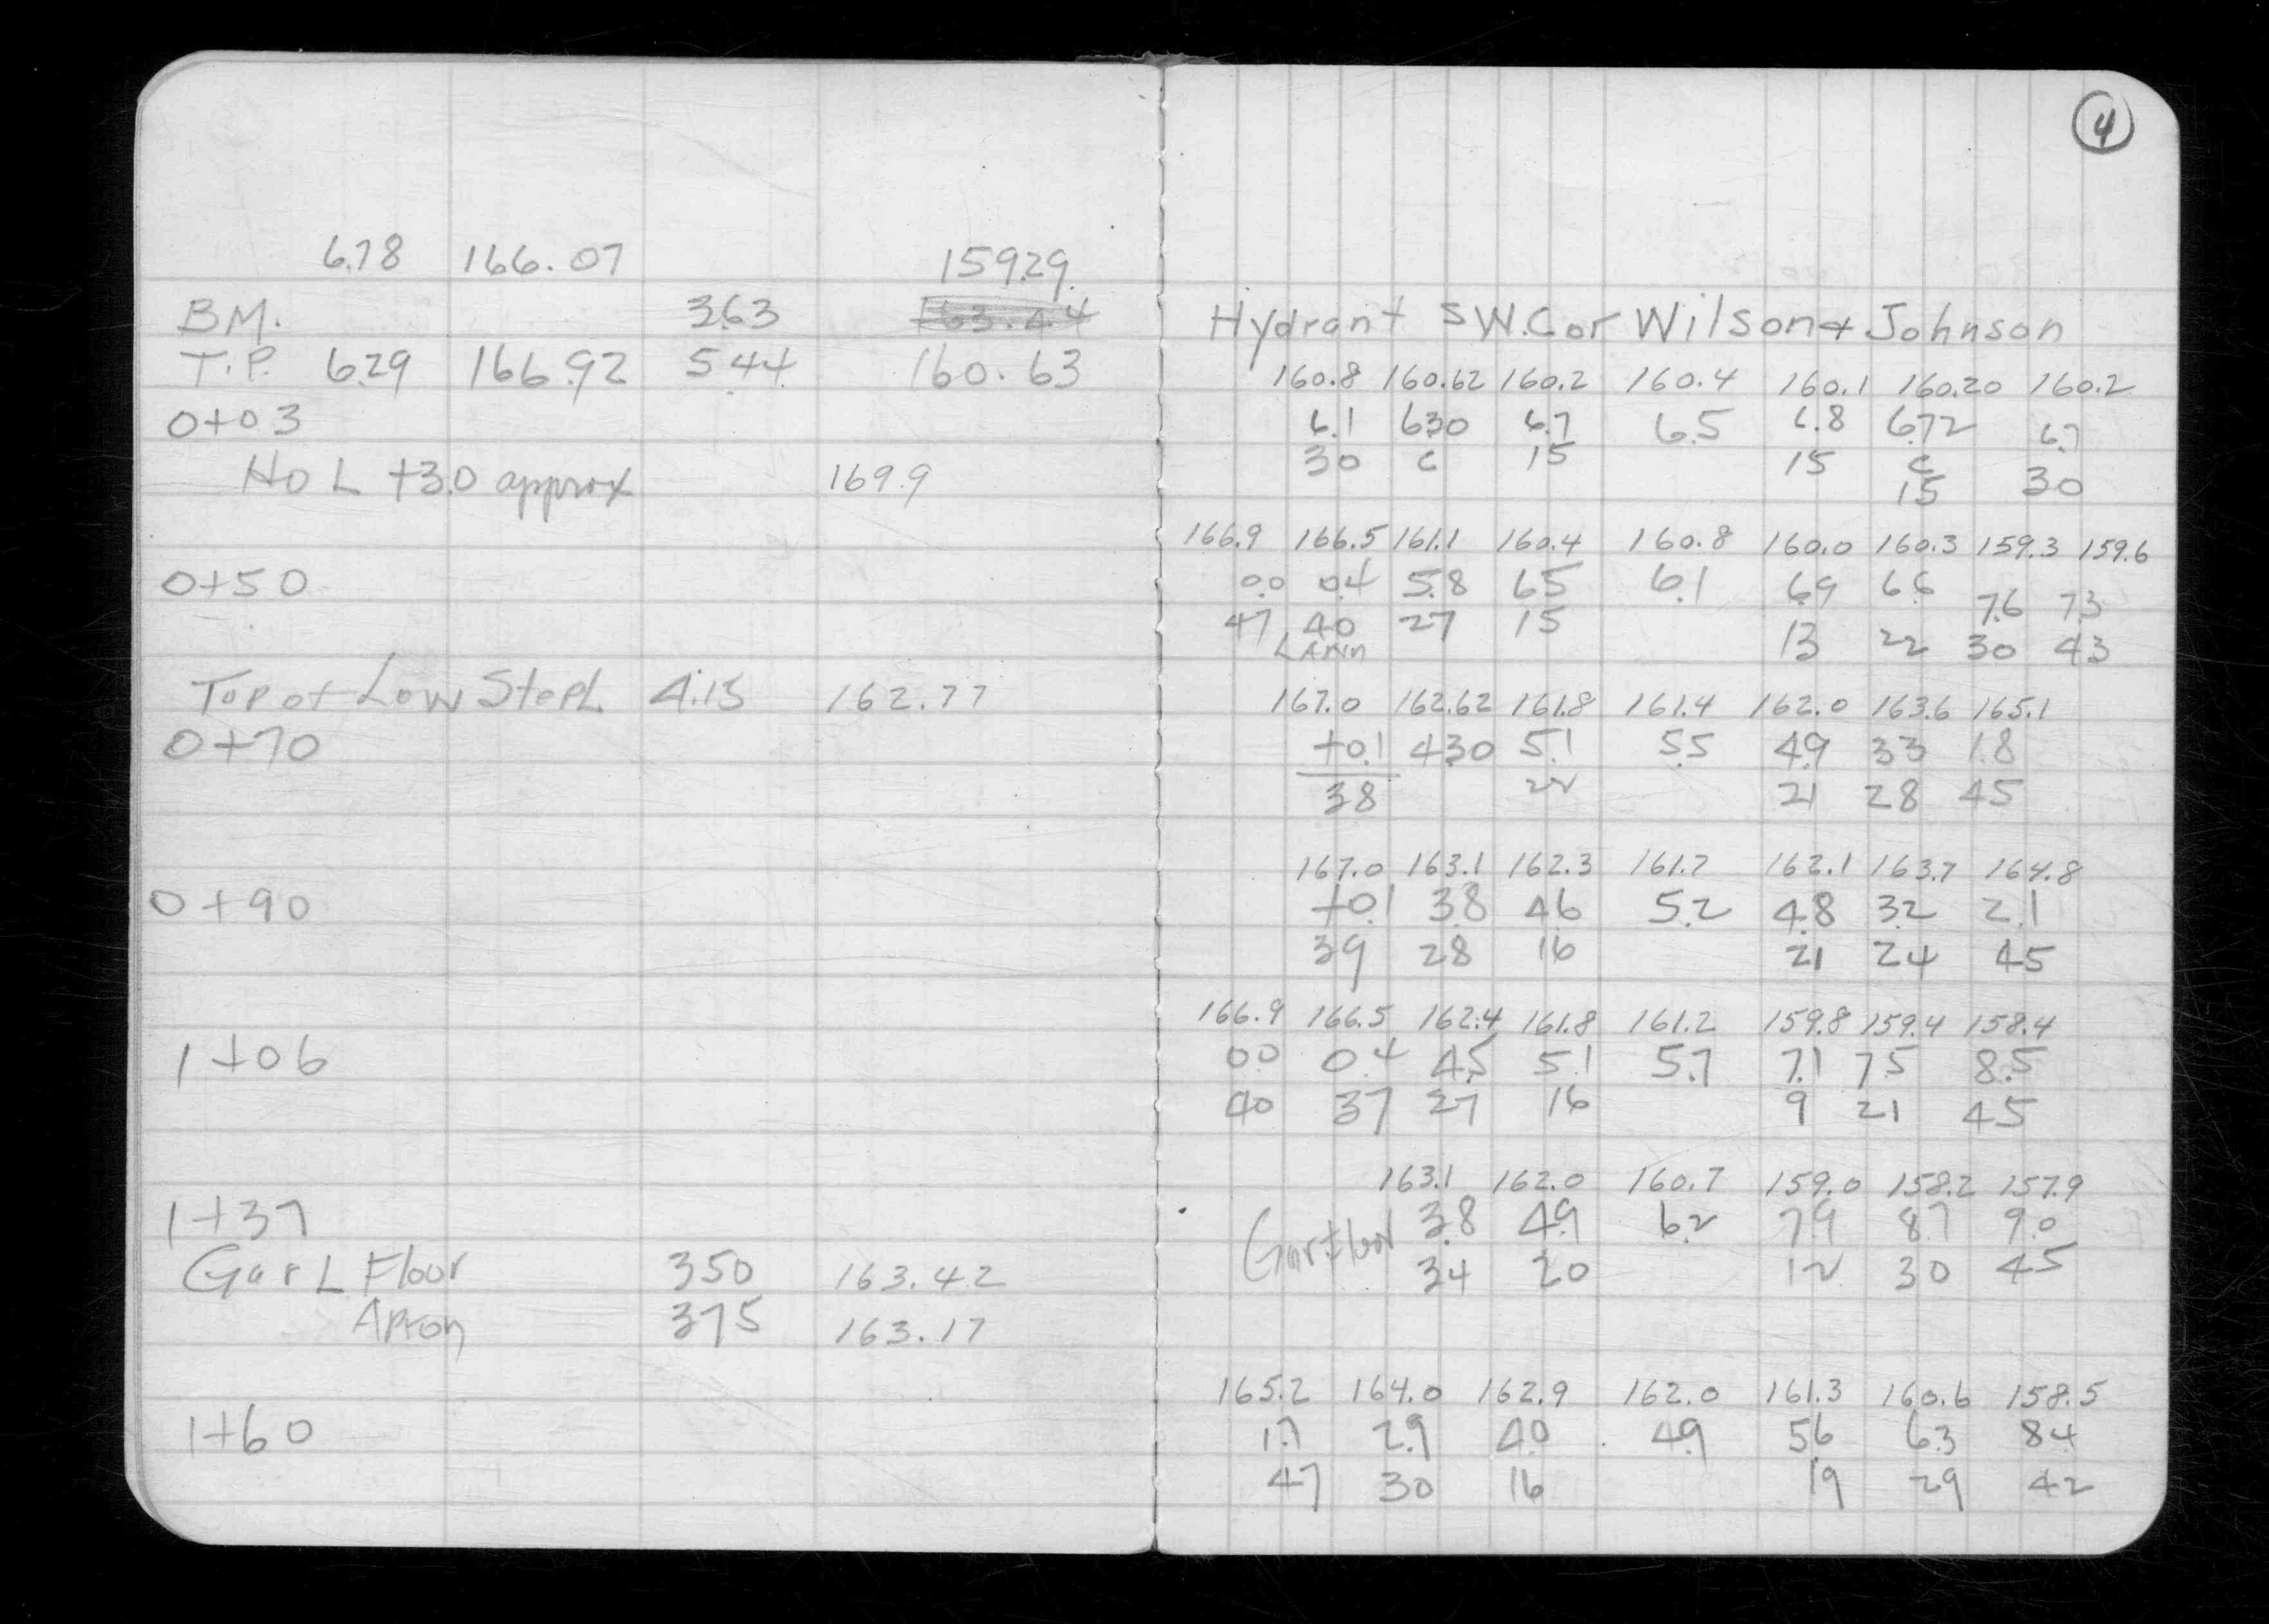 4
6.78 166.07 159.29
BM. 3.63 163.44
Hydrant SW.Cor Wilson + Johnson
T.P. 6.29 166.92 5.44 160.63
160.8 160.62 160.2 160.4 160.1 160.20 160.2
0+03
6.1 6.30 6.7 6.5 6.8 6.72 6.7
Ho L +3.0 approx 169.9
30 C 15 15 C 30
15
166.9 166.5 161.1 160.4 160.8 160.0 160.3 159.3 159.6
0+50
0.0 0.4 5.8 6.5 6.1 6.9 6.6 7.6 7.3
47 40 27 15 13 22 30 43
LAWN
Top of Low Step L 4.15 162.77
167.0 162.62 161.8 161.4 162.0 163.6 165.1
0+70
+0.1 4.30 5.1 5.5 4.9 3.3 1.8
38 22 21 28 45
167.0 163.1 162.3 161.7 162.1 163.7 164.8
0+90
+0.1 3.8 4.6 5.2 4.8 3.2 2.1
39 28 16 21 24 45
166.9 166.5 162.4 161.8 161.2 159.8 159.4 158.4
1+06
0.0 0.4 4.5 5.1 5.7 7.1 7.5 8.5
40 37 27 16 9 21 45
163.1 162.0 160.7 159.0 158.2 157.9
1+37
Gar Floor 3.8 4.9 6.2 7.9 8.7 9.0
Gar L Floor 3.50 163.42
34 20 12 30 45
Apron 3.75 163.17
165.2 164.0 162.9 162.0 161.3 160.6 158.5
1+60
1.7 2.9 4.0 4.9 5.6 6.3 8.4
47 30 16 19 29 42